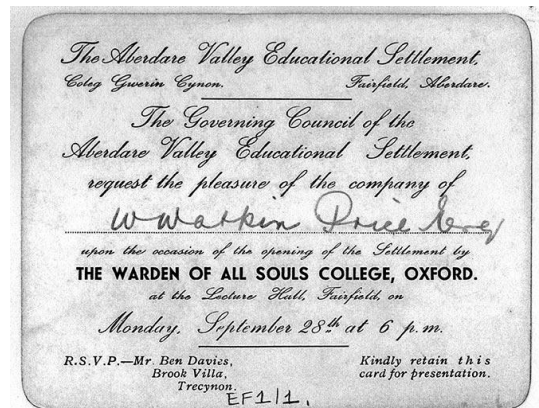 The Aberdare Valley Educational Settlement,
Coleg Gwerin Cynon. Fairfield, Aberdare.
The Governing Council of the
Aberdare Valley Educational Settlement,
request the pleasure of the company of
W Watkin Price Esq
upon the occasion of the opening of the Settlement by
THE WARDEN OF ALL SOULS COLLEGE, OXFORD.
at the Lecture Hall, Fairfield, on
Monday, September 28th at 6 p.m.
R.S.V.P.—Mr. Ben Davies,
Brook Villa,
Trecynon.
Kindly retain this
card for presentation.
EF1/1.